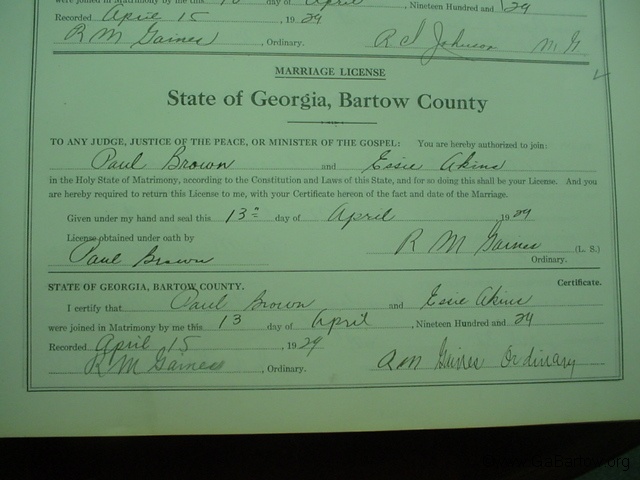 were joined in Matrimony by me this day of April , Nineteen Hundred and 29
Recorded April 15 , 19 29
R M Gaines , Ordinary. R Johnson M G
MARRIAGE LICENSE
State of Georgia, Bartow County
TO ANY JUDGE, JUSTICE OF THE PEACE, OR MINISTER OF THE GOSPEL: You are hereby authorized to join:
Paul Brown and Essie Akins
in the Holy State of Matrimony, according to the Constitution and Laws of this State, and for so doing this shall be your License. And you
are hereby required to return this License to me, with your Certificate hereon of the fact and date of the Marriage.
Given under my hand and seal this 13 day of April 19 29
License obtained under oath by
Paul Brown R M Gaines (L. S.)
Ordinary.
STATE OF GEORGIA, BARTOW COUNTY. Certificate.
I certify that Paul Brown and Essie Akins
were joined in Matrimony by me this 13 day of April , Nineteen Hundred and 29
Recorded April 15 , 19 29
R M Gaines , Ordinary. R M Gaines Ordinary